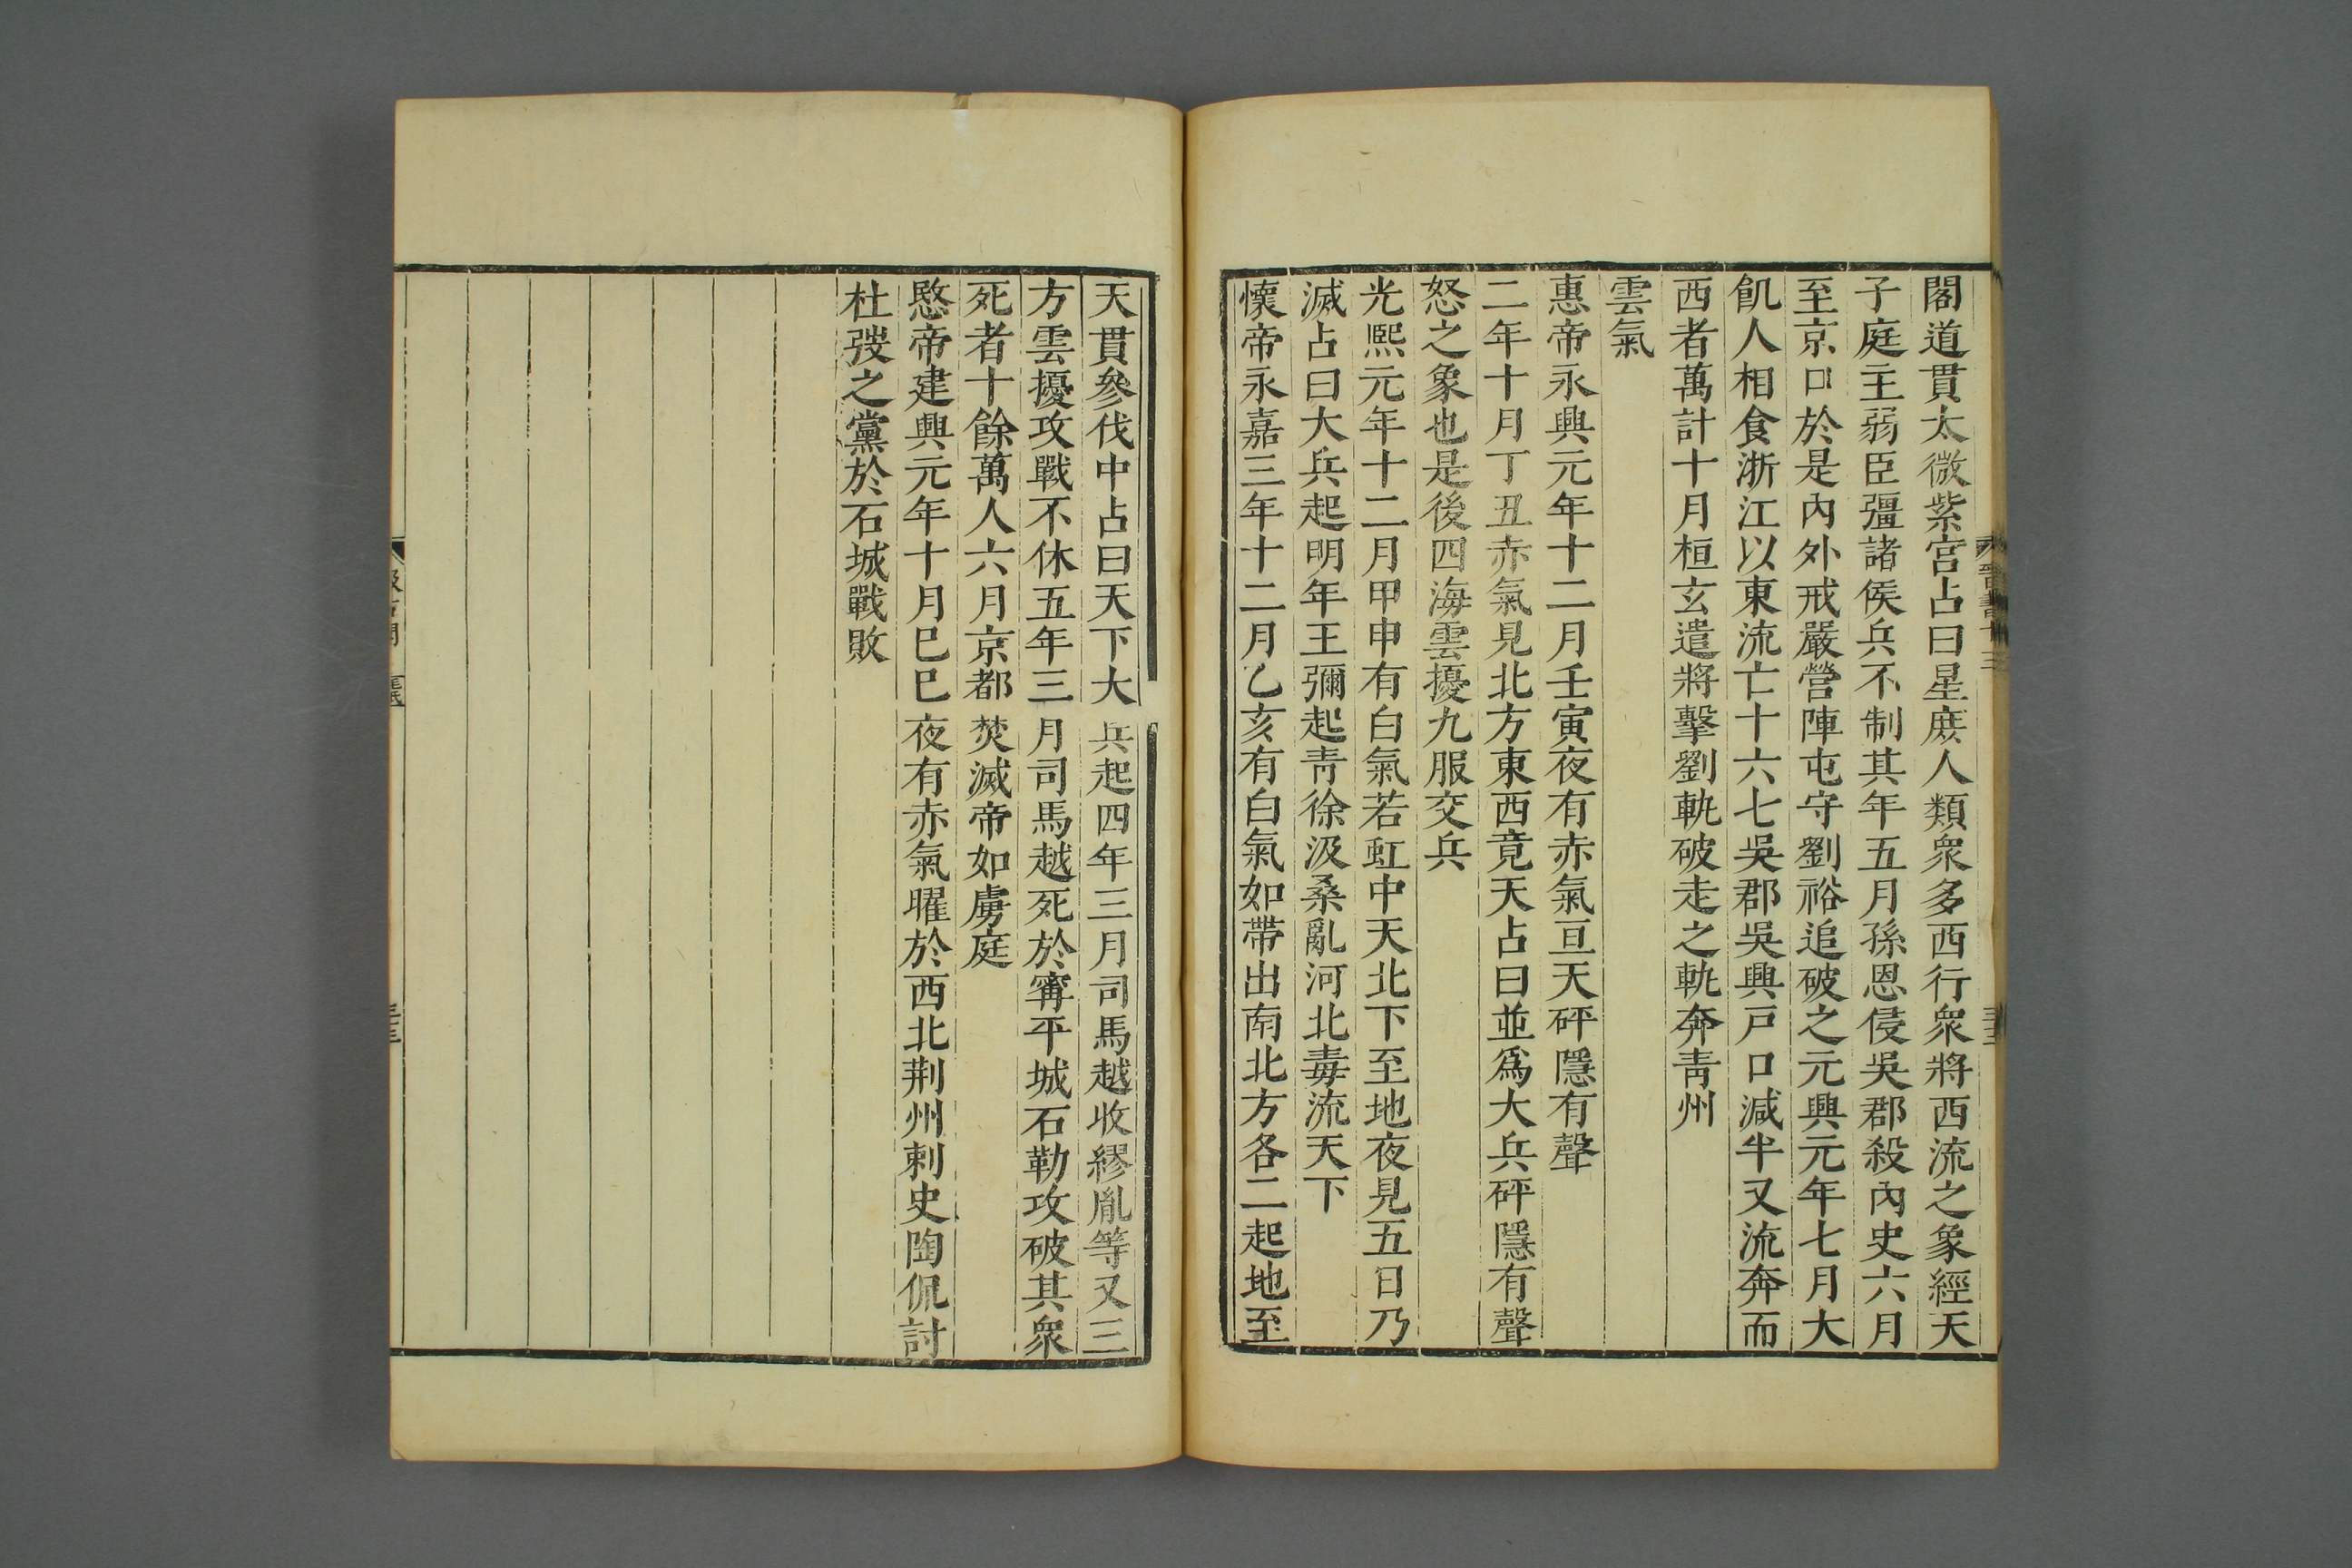 閣道貫太微紫宮占曰星庶人類衆多西行衆將西流之象經天
子庭主弱臣彊諸侯兵不制其年五月孫恩侵吳郡殺內史六月
至京口於是內外戒嚴營陣屯守劉裕追破之元興元年七月大
飢人相食浙江以東流亡十六七吳郡吳興戸口減半又流奔而
西者萬計十月桓玄遣將擊劉軌破走之軌奔靑州
雲氣
惠帝永興元年十二月壬寅夜有赤氣亘天砰隱有聲
二年十月丁丑赤氣見北方東西竟天占曰並爲大兵砰隱有聲
怒之象也是後四海雲擾九服交兵
光熙元年十二月甲申有白氣若虹中天北下至地夜見五日乃
滅占曰大兵起明年王彌起靑徐汲桑亂河北毒流天下
懷帝永嘉三年十二月乙亥有白氣如帶出南北方各二起地至
天貫參伐中占曰天下大兵起四年三月司馬越收繆胤等又三
方雲擾攻戰不休五年三月司馬越死於甯平城石勒攻破其衆
死者十餘萬人六月京都焚滅帝如虜庭
愍帝建興元年十月巳巳夜有赤氣曜於西北荆州刺史陶侃討
杜弢之黨於石城戰敗